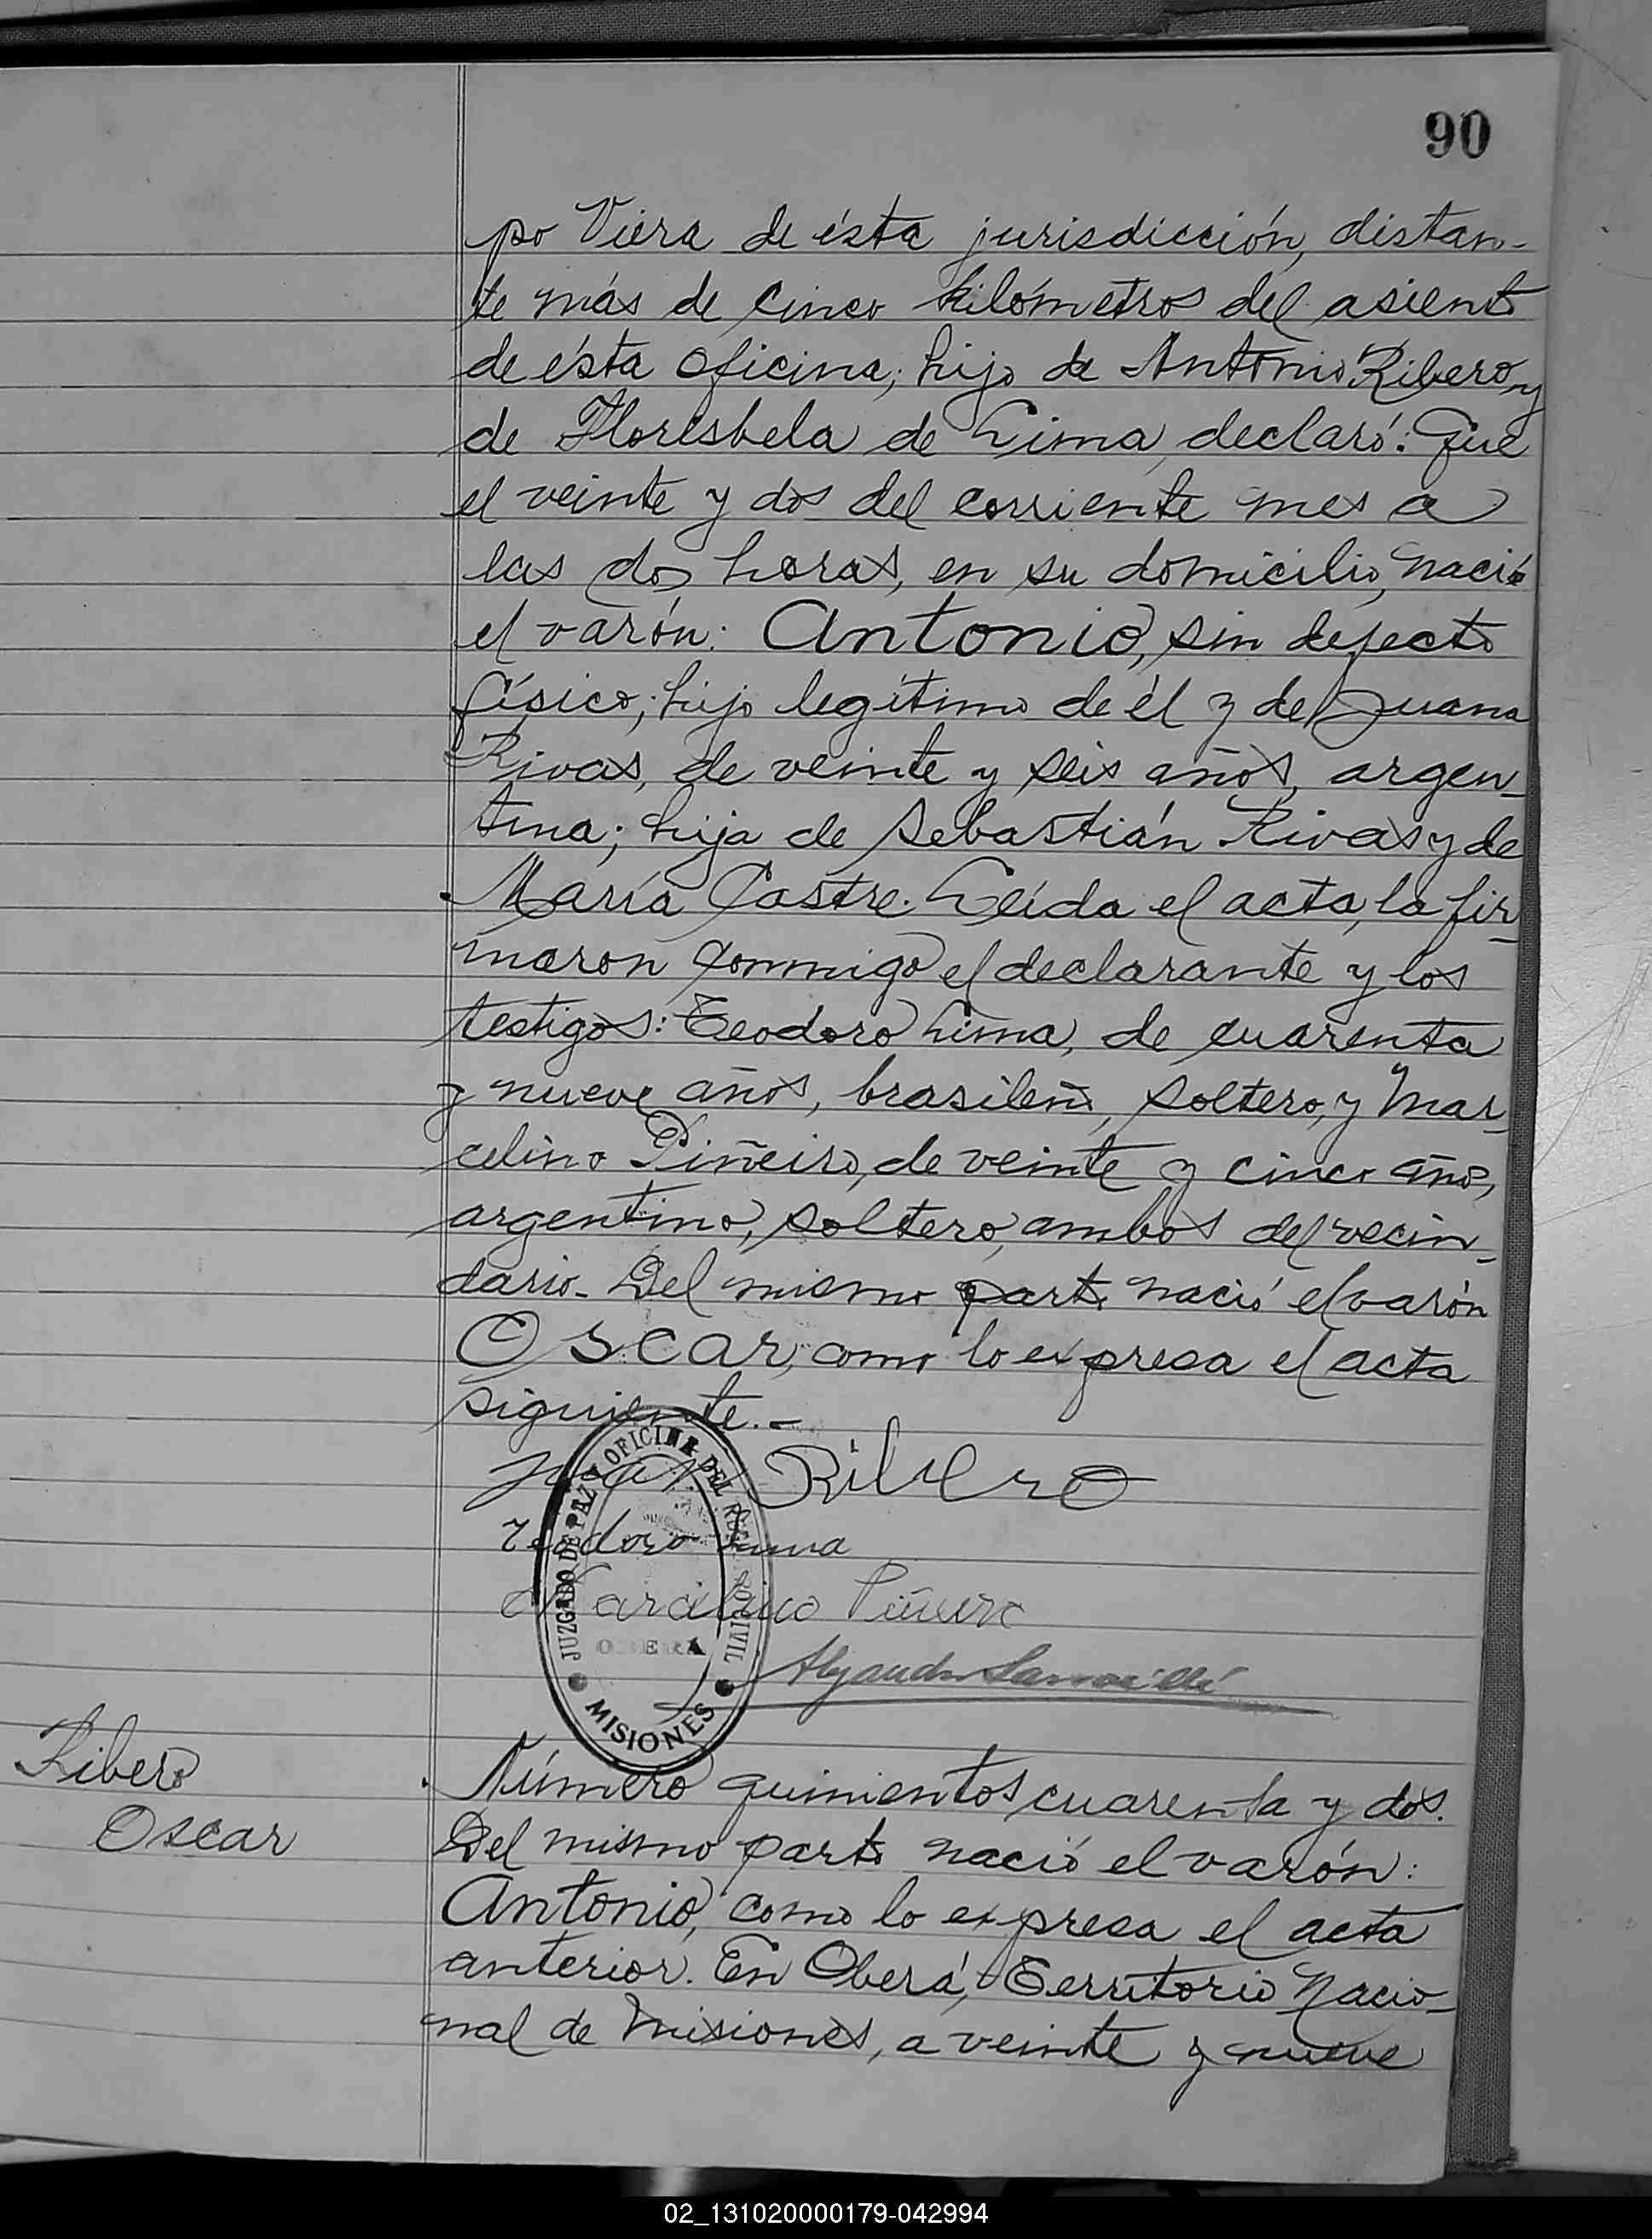 90
po Viera de ésta jurisdicción, distan-
te más de cinco kilómetros del asiento
de ésta oficina; hijo de Antonio Ribero, y
de Floresbela de Lima, declaró: Que
el veinte y dos del corriente mes a
las dos horas, en su domicilio, nació
el varón: Antonio, sin defecto
físico; hijo legítimo de él y de Juana
Rivas, de veinte y seis años, argen-
tina; hija de Sebastián Rivas y de
María Castre. Leída el acta, la fir-
maron conmigo el declarante y los
testigos: Teodoro Lima, de cuarenta
y nueve años, brasileño, soltero, y Mar-
celino Piñeiro, de veinte y cinco años,
argentino, soltero, ambos del vecin-
dario.- Del mismo parto nació el varón
Oscar, como lo expresa el acta
siguiente.-
Juan Ribero
Teodoro Lima
Marcelino Piñero
Alejandro
JUZGADO DE PAZ Y OFICINA DEL REGISTRO CIVIL
OBERÁ
MISIONES
Ribero
Oscar
Número quinientos cuarenta y dos.
Del mismo parto nació el varón:
Antonio, como lo expresa el acta
anterior. En Oberá, Territorio Nacio-
nal de Misiones, a veinte y nueve
02_131020000179-042994